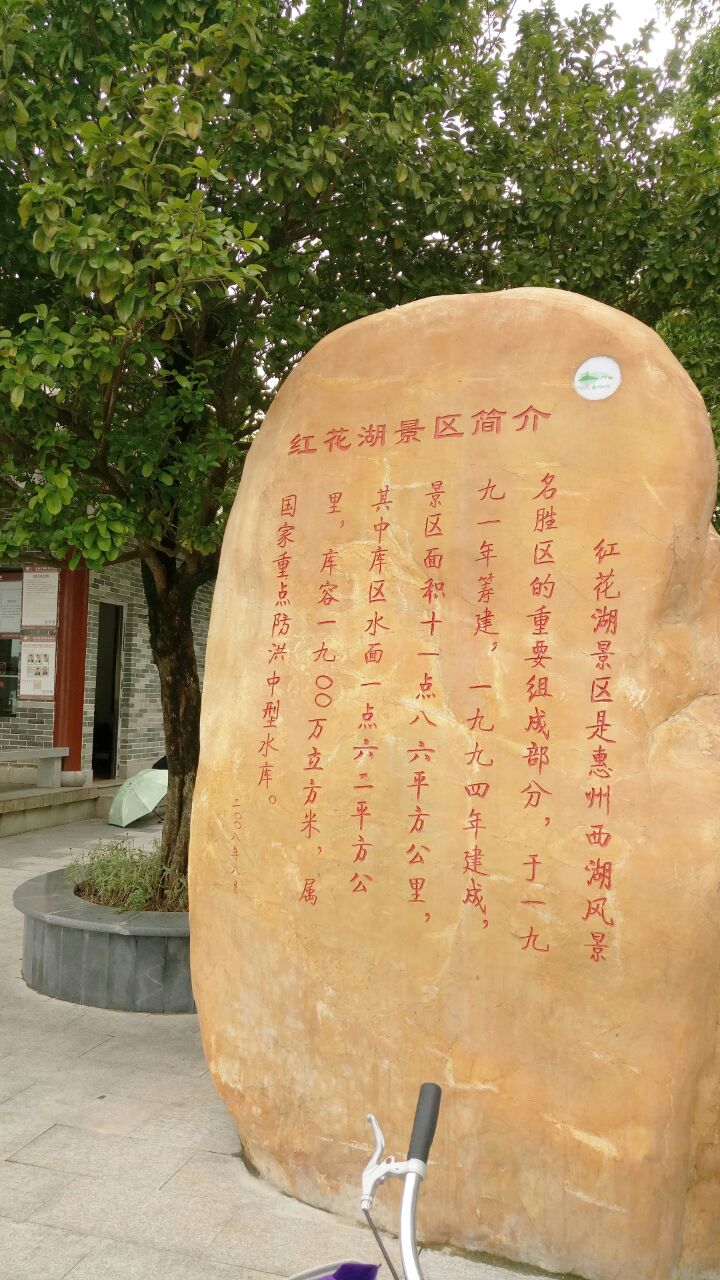 红花湖景区简介
红花湖景区是惠州西湖风景
名胜区的重要组成部分，于一九
九一年筹建，一九九四年建成，
景区面积十一点八六平方公里，
其中库区水面一点六二平方公
里，库容一九〇〇万立方米，属
国家重点防洪中型水库。
二〇〇八年八月